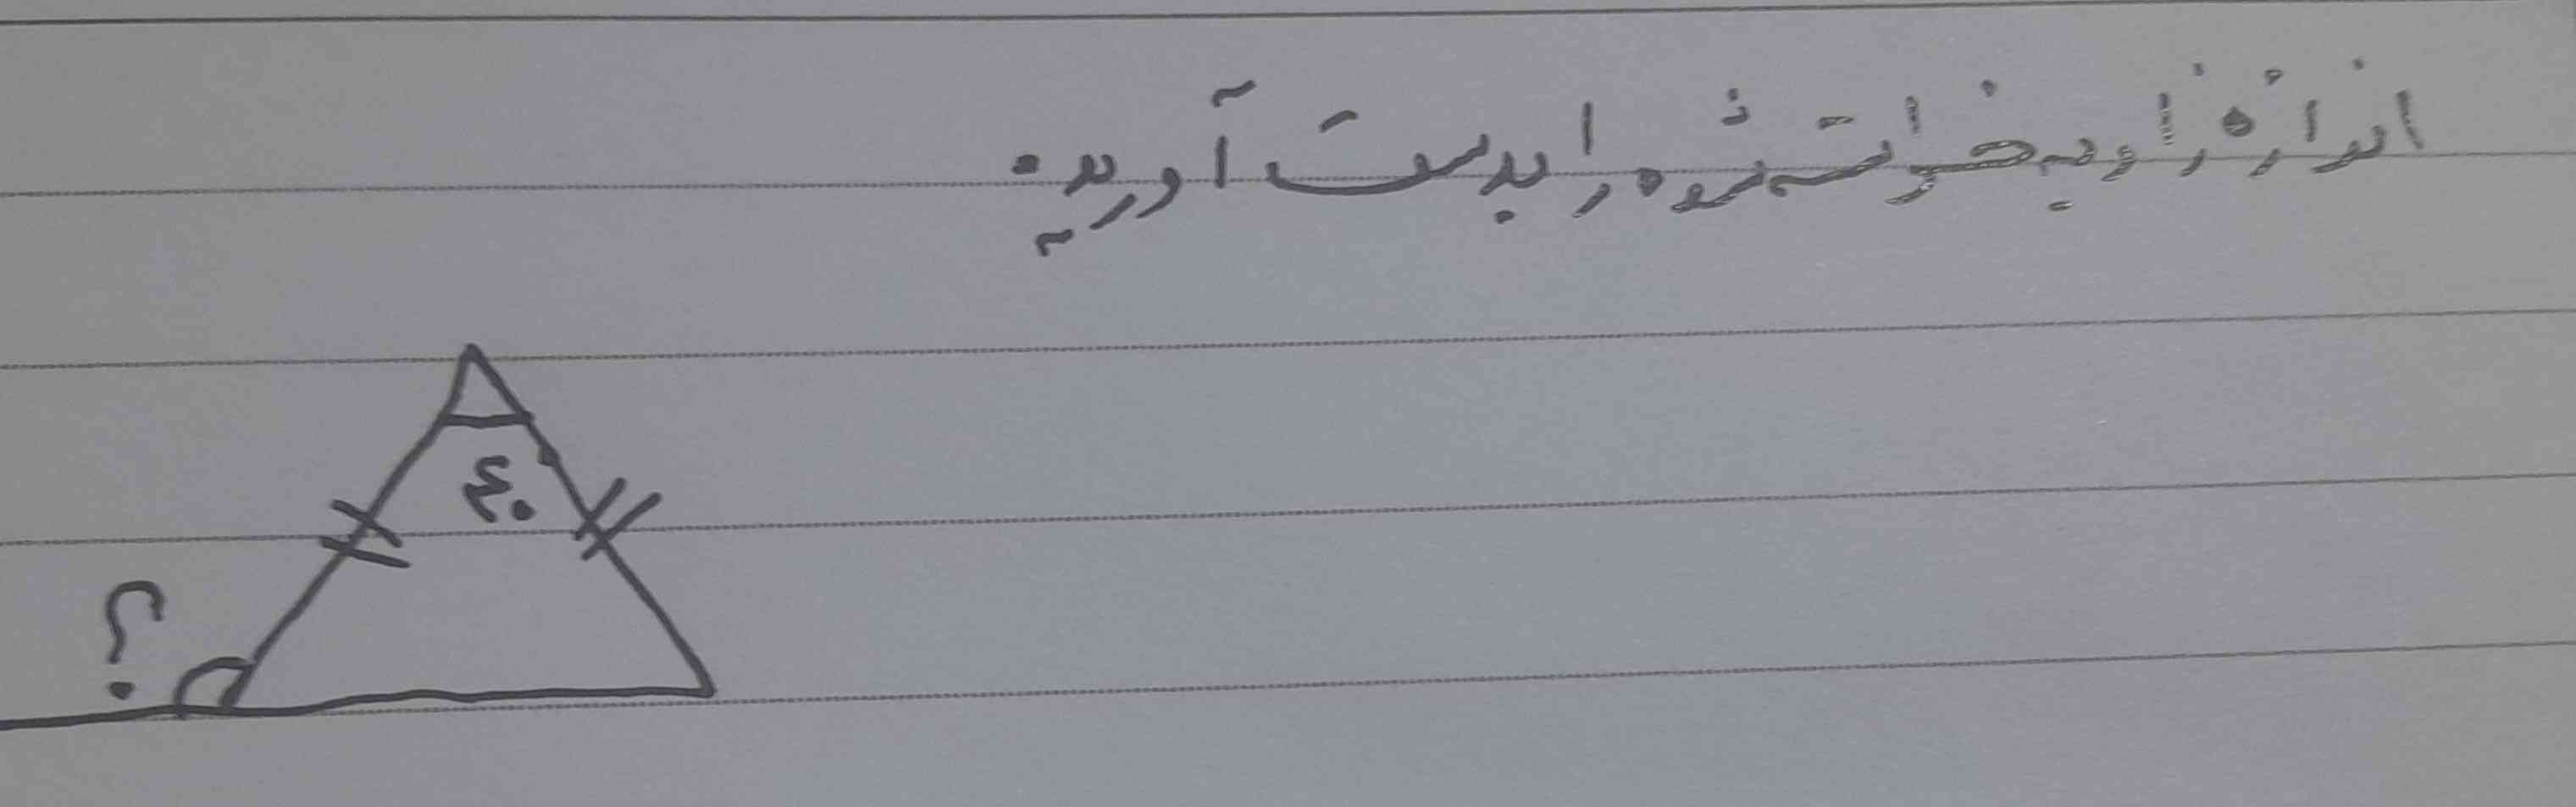 اندازه زاویه خواسته شده را بدست آورید.
٤٠
؟